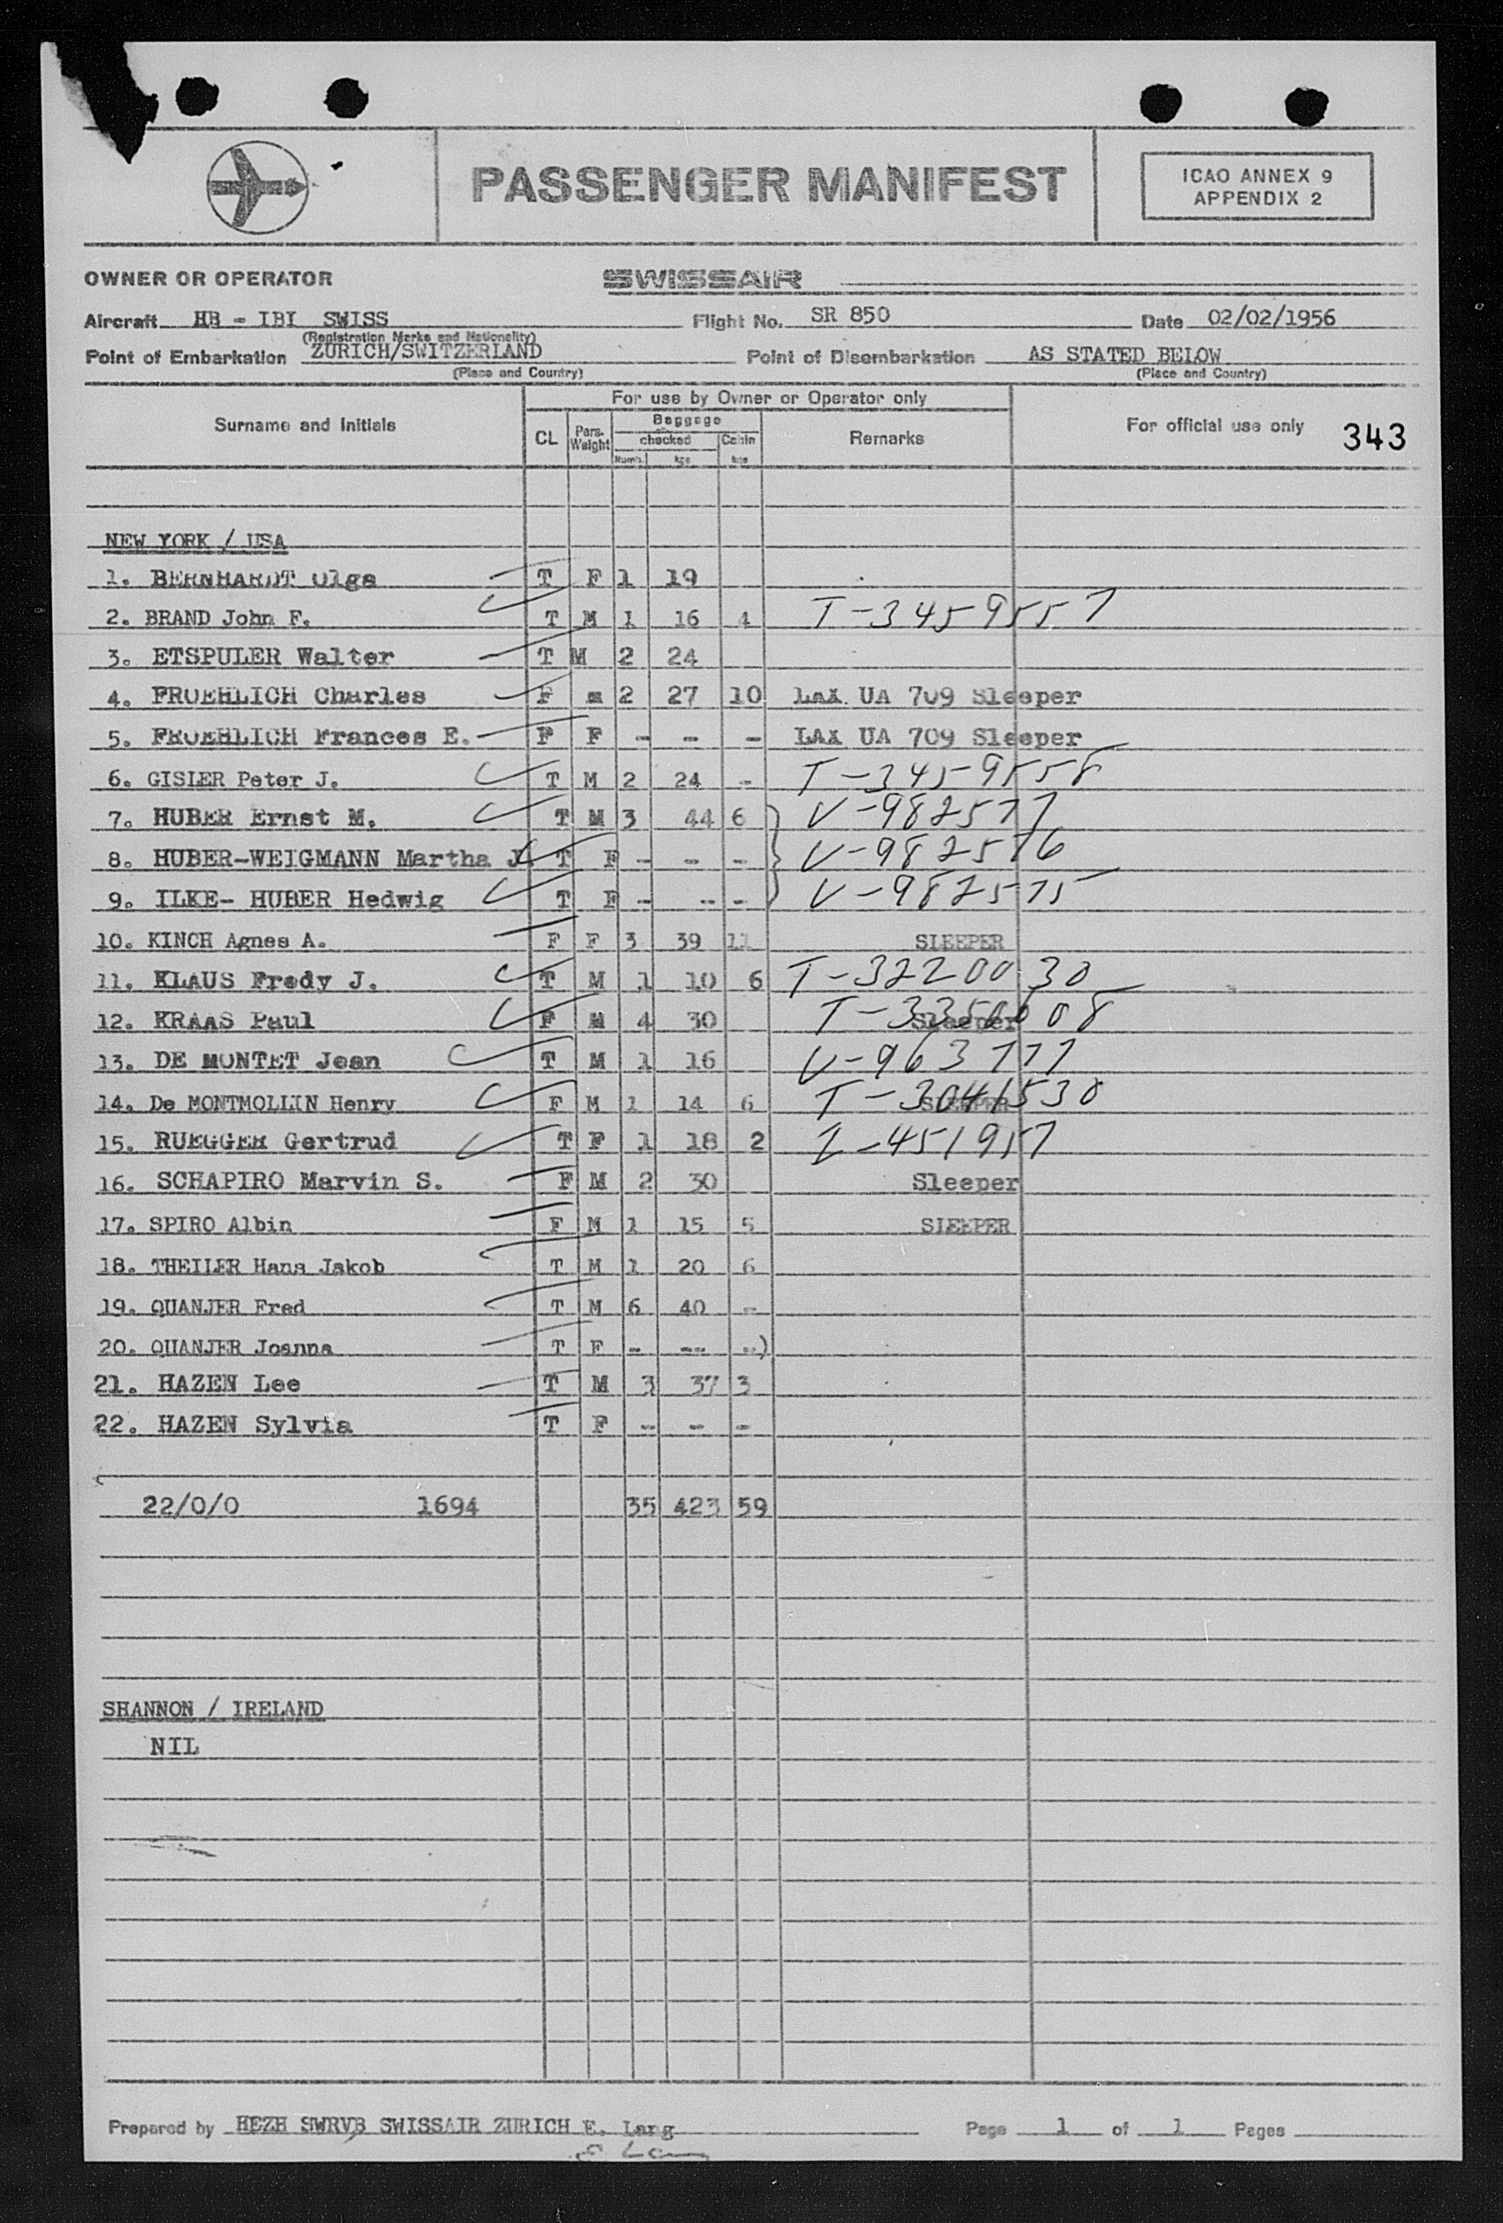 PASSENGER MANIFEST
ICAO ANNEX 9
APPENDIX 2
OWNER OR OPERATOR SWISSAIR
Aircraft HB - IBI SWISS Flight No. SR 850 Date 02/02/1956
(Registration Marks and Nationality)
Point of Embarkation ZURICH/SWITZERLAND Point of Disembarkation AS STATED BELOW
(Place and Country) (Place and Country)
For use by Owner or Operator only
Surname and Initials CL Pers. Weight Baggage checked Cabin Remarks For official use only 343
Numb. kgs kgs
NEW YORK / USA
1. BERNHARDT Olga T F 1 19
2. BRAND John F. T M 1 16 4 T-3459557
3. ETSPULER Walter T M 2 24
4. FROEHLICH Charles F m 2 27 10 LAX UA 709 Sleeper
5. FROEHLICH Frances E. F F - - - LAX UA 709 Sleeper
6. GISLER Peter J. T M 2 24 - T-3459558
7. HUBER Ernst M. T M 3 44 6 V-982577
8. HUBER-WEIGMANN Martha J. T F - - - V-982576
9. ILKE- HUBER Hedwig T F - -- - V-982575
10. KINCH Agnes A. F F 3 39 11 SLEEPER
11. KLAUS Fredy J. T M 1 10 6 T-3220030
12. KRAAS Paul F M 4 30 Sleeper T-3350608
13. DE MONTET Jean T M 1 16 V-963777
14. De MONTMOLLIN Henry F M 1 14 6 SLEEPER T-3041530
15. RUEGGER Gertrud T F 1 18 2 I-451957
16. SCHAPIRO Marvin S. F M 2 30 Sleeper
17. SPIRO Albin F M 1 15 5 SLEEPER
18. THEILER Hans Jakob T M 1 20 6
19. QUANJER Fred T M 6 40 -
20. QUANJER Joanna T F - -- --)
21. HAZEN Lee T M 3 37 3
22. HAZEN Sylvia T F - - -
22/0/0 1694 35 423 59
SHANNON / IRELAND
NIL
Prepared by HEZH SWRVB SWISSAIR ZURICH E. Lang Page 1 of 1 Pages
E Lang